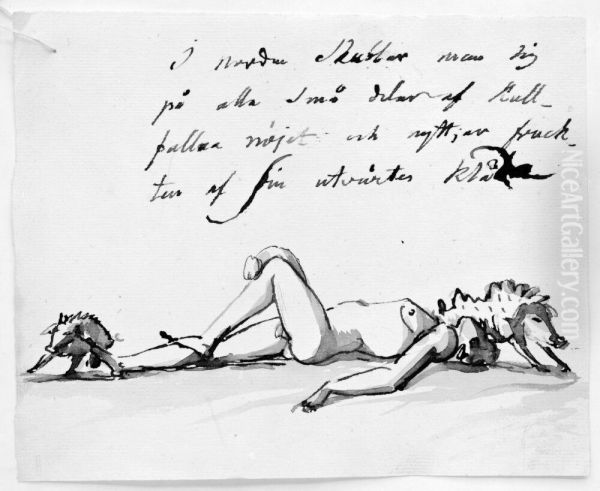 I norden skubbar man sig
på alla små delar af kull-
fallna nöjet och nyttjar fruck-
ten af sin utvärtes klåda
NiceArtGallery.com